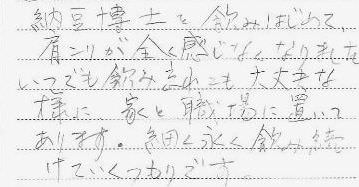 納豆博士を飲みはじめて、
肩こりが全く感じなくなりました
いつでも飲みわすれても大丈夫な
様に 家と職場に置いて
あります。細く永く飲み続
けていくつもりです。